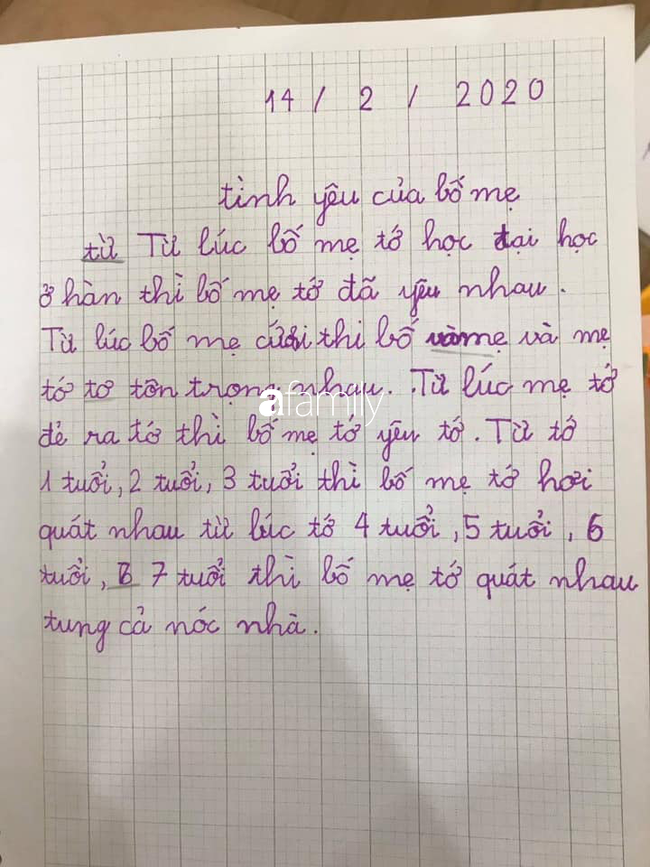 14 / 2 / 2020
tình yêu của bố mẹ
từ Từ lúc bố mẹ tớ học đại học
ở hàn thì bố mẹ tớ đã yêu nhau.
Từ lúc bố mẹ cưới thì bố vàmẹ và mẹ
tớ tơ tôn trọng nhau. Từ lúc mẹ tớ
đẻ ra tớ thì bố mẹ tớ yêu tớ. Từ tớ
1 tuổi, 2 tuổi, 3 tuổi thì bố mẹ tớ hơi
quát nhau từ lúc tớ 4 tuổi, 5 tuổi, 6
tuổi, 7 tuổi thì bố mẹ tớ quát nhau
tung cả nóc nhà.
afamily